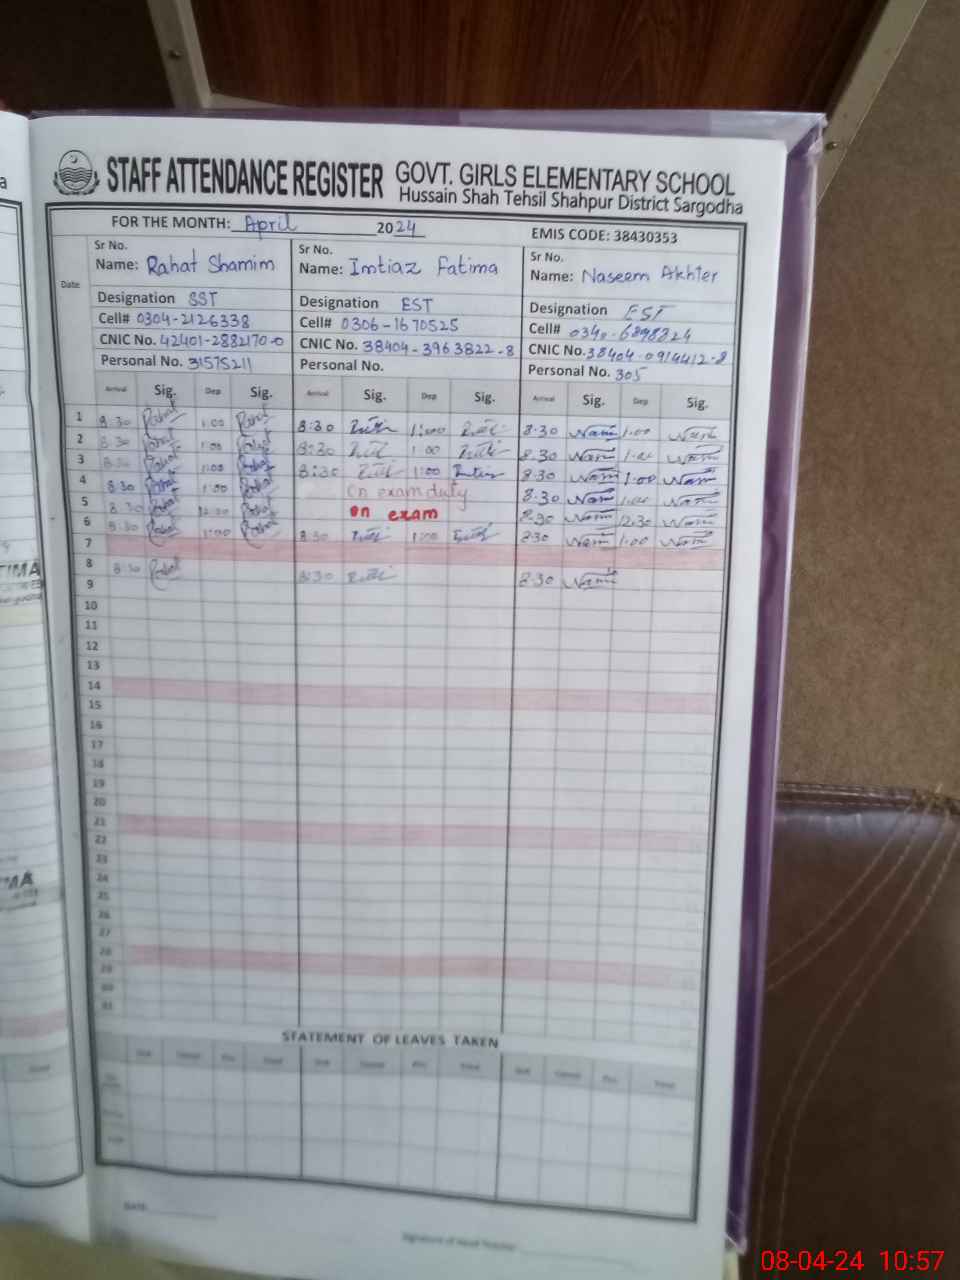 STAFF ATTENDANCE REGISTER GOVT. GIRLS ELEMENTARY SCHOOL
Hussain Shah Tehsil Shahpur District Sargodha
FOR THE MONTH: April 2024 EMIS CODE: 38430353
Date Sr No. Sr No. Sr No.
Name: Rahat Shamim Name: Imtiaz Fatima Name: Naseem Akhter
Designation SST Designation EST Designation EST
Cell# 0304-2126338 Cell# 0306-1670525 Cell#
CNIC No. 42401-2882170-0 CNIC No. 38404-3963822-8 CNIC No. 38404-0914412-8
Personal No. 31575211 Personal No. Personal No. 305
Arrival Sig. Dep Sig. Arrival Sig. Dep Sig. Arrival Sig. Dep Sig.
1 8:30 1:00 8:30 1:00 8:30 1:00
2 8:30 1:00 8:30 1:00 8:30 1:00
3 8:30 1:00 8:30 1:00 8:30 1:00
4 8:30 1:00 on exam duty 8:30 1:00
5 8:30 12:30 on exam 8:30 12:30
6 8:30 1:00 8:30 1:00 8:30 1:00
7
8 8:30 8:30 8:30
9
10
11
12
13
14
15
16
17
18
19
20
21
22
23
24
25
26
27
28
29
30
31
STATEMENT OF LEAVES TAKEN
DATE
Signature of Head Teacher
08-04-24 10:57